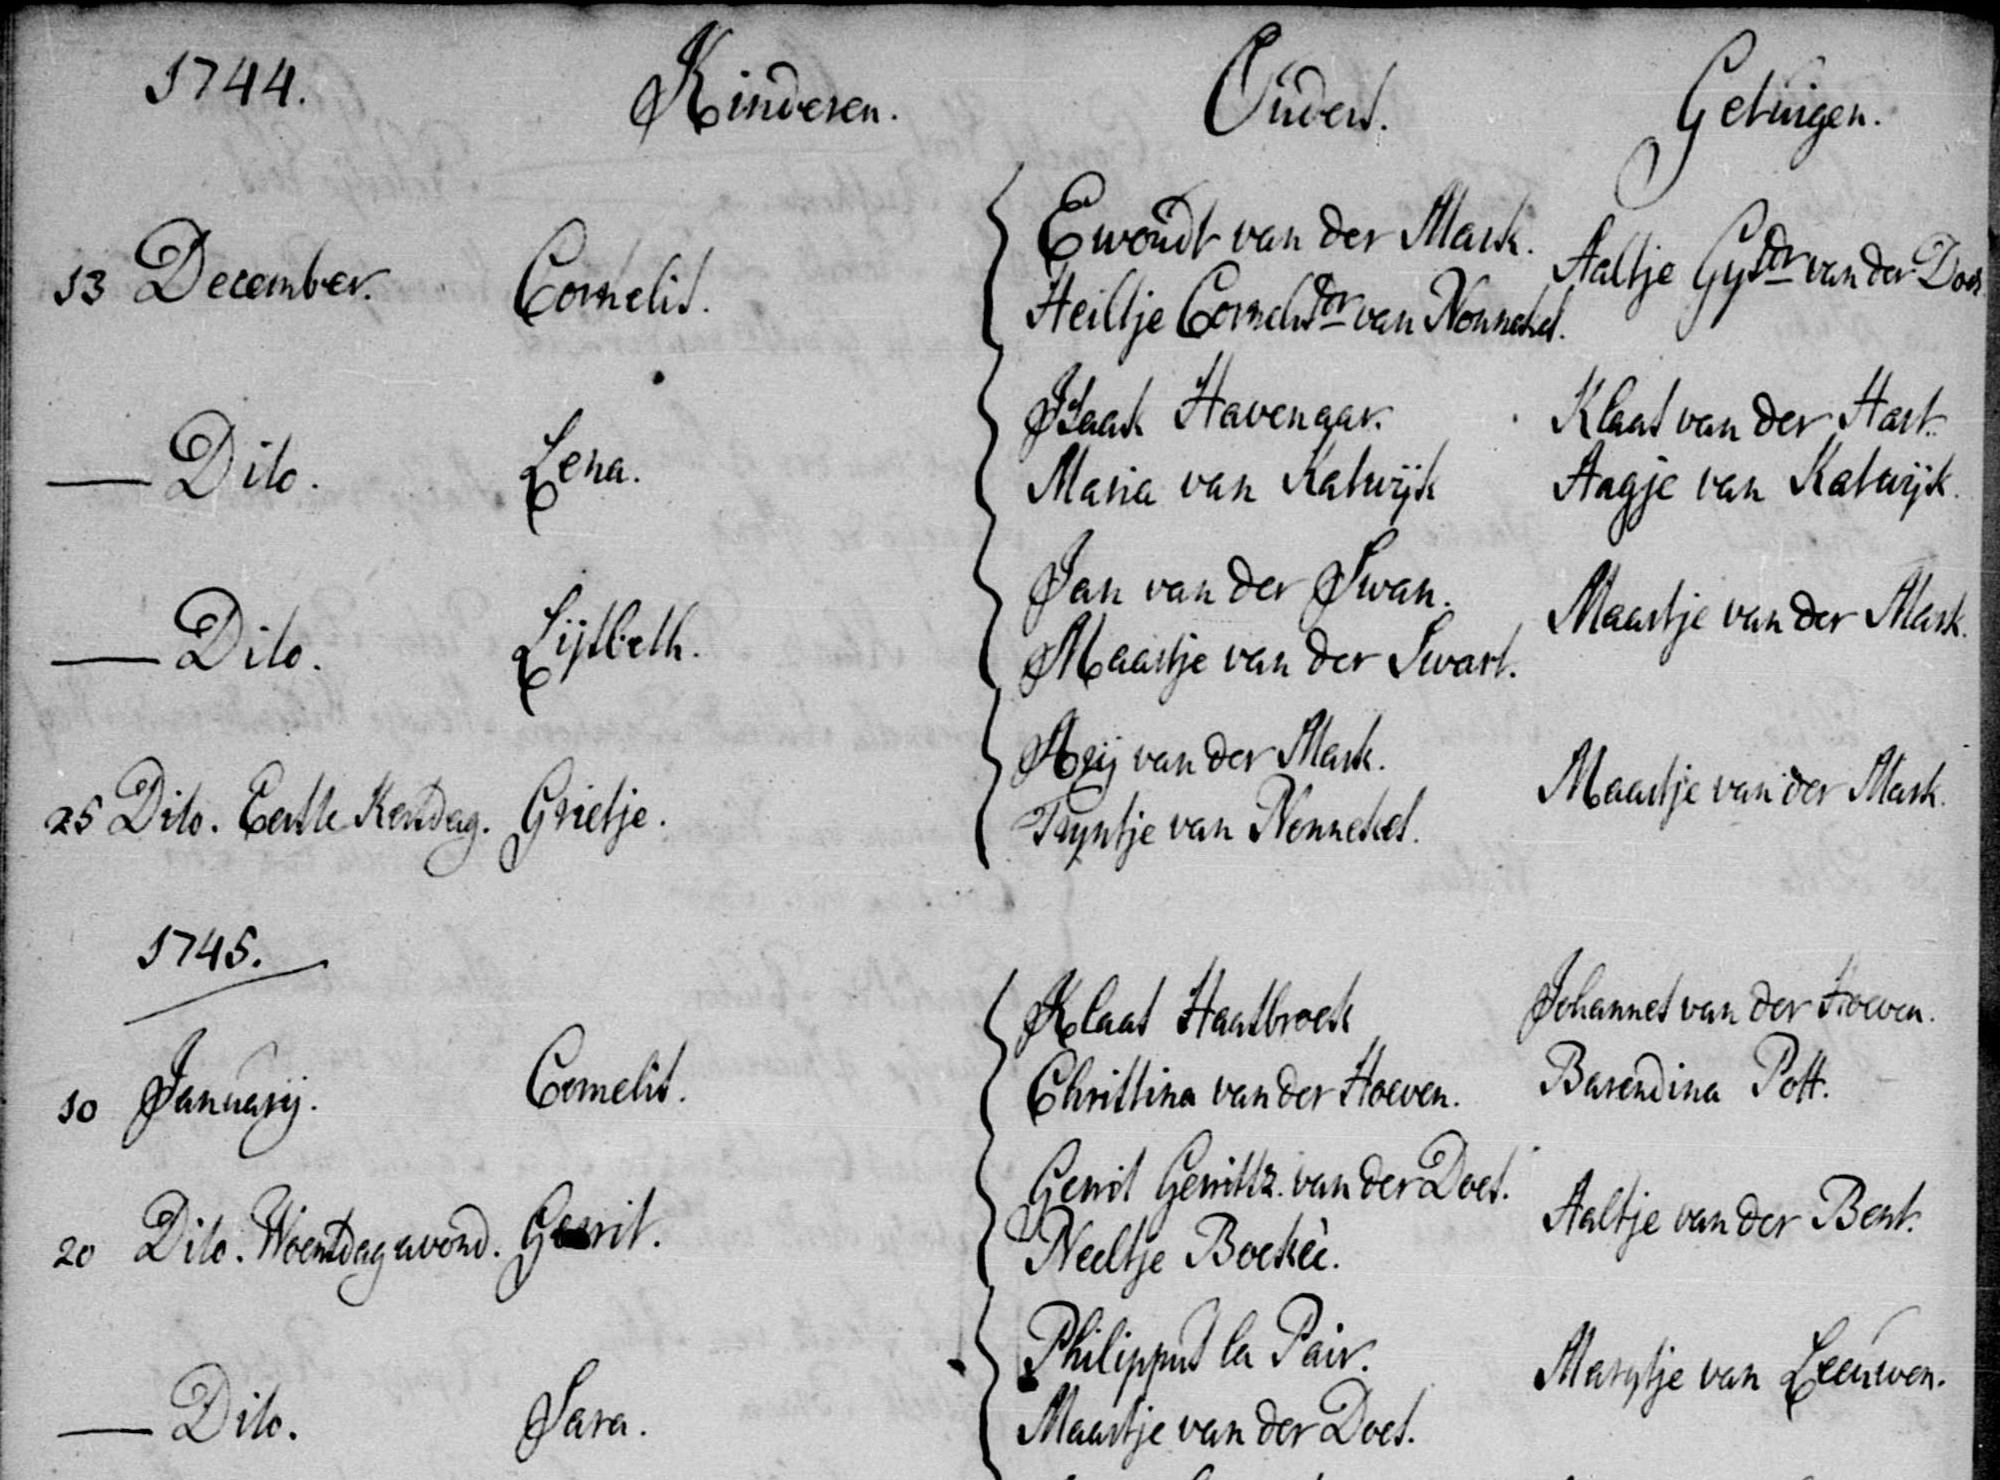 1744. Kinderen. Ouders. Getuigen.
Ewoudt van der Mark.
13 December. Cornelis. Aaltje Gysdr van der Does
Heiltje Cornelisdr van Nonnekes.
Isaak Havenaar. Klaas van der Hart.
Dito. Lena.
Maria van Katwijk Aagje van Katwijk.
Jan van der Swan. Maartje van der Mark.
Dito. Lijsbeth.
Maartje van der Swart.
Arij van der Mark.
25 Dito. Eerste Kersdag. Grietje. Maartje van der Mark.
Tryntje van Nonnekes.
1745.
Klaas Haasbroek Johannes van der Hoeven.
10 January. Cornelis.
Christina van der Hoeven. Barendina Pott.
Gerrit Gerritsz. van der Does.
20 Dito. Woensdag avond. Gerrit. Aaltje van der Bent.
Neeltje Boekeè.
Philippus la Pair. Marytje van Leeuwen.
Dito. Sara.
Maartje van der Does.